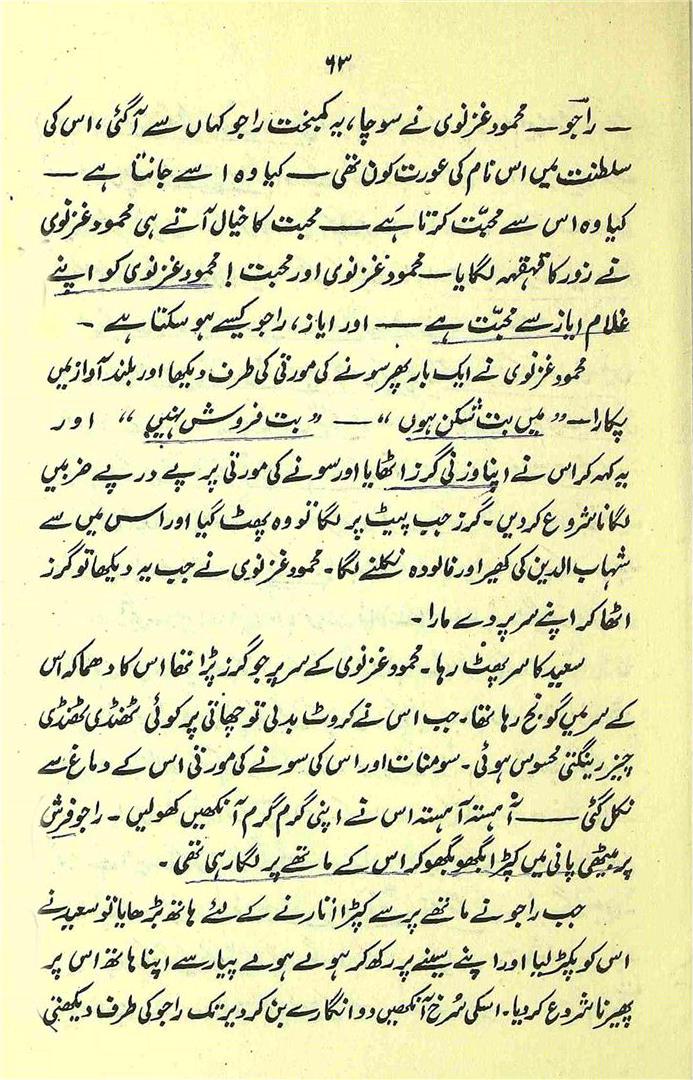 ۶۳
— راجو — محمود غزنوی نے سوچا، یہ کمبخت راجو کہاں سے آگئی، اس کی
سلطنت میں اس نام کی عورت کون تھی — کیا وہ اسے جانتا ہے —
کیا وہ اس سے محبّت کرتا ہے — محبت کا خیال آتے ہی محمود غزنوی
نے زور کا قہقہہ لگایا — محمود غزنوی اور محبت! محمود غزنوی کو اپنے
غلام ایاز سے محبّت ہے — اور ایاز، راجو کیسے ہو سکتا ہے —
محمود غزنوی نے ایک بار پھر سونے کی مورتی کی طرف دیکھا اور بلند آواز میں
پکارا — ”میں بت شکن ہوں“ — ”بت فروش نہیں“ اور
یہ کہہ کر اس نے اپنا وزنی گرز اٹھایا اور سونے کی مورتی پر پے در پے ضربیں
لگانا شروع کر دیں۔ گرز جب پیٹ پر لگا تو وہ پھٹ گیا اور اس میں سے
شہاب الدین کی کھیر اور فالودہ نکلنے لگا۔ محمود غزنوی نے جب یہ دیکھا تو گرز
اٹھا کر اپنے سر پر دے مارا۔
سعید کا سر پھٹ رہا۔ محمود غزنوی کے سر پر جو گرز پڑا تھا اس کا دھماکہ اس
کے سر میں گونج رہا تھا۔ جب اس نے کروٹ بدلی تو چھاتی پر کوئی ٹھنڈی ٹھنڈی
چیز رینگتی محسوس ہوئی۔ سومنات اور اس کی سونے کی مورتی اس کے دماغ سے
نکل گئی — آہستہ آہستہ اس نے اپنی گرم گرم آنکھیں کھولیں۔ راجو فرش
پر بیٹھی پانی میں کپڑا بھگو بھگو کر اس کے ماتھے پر لگا رہی تھی۔
جب راجو نے ماتھے پر سے کپڑا اُتارنے کے لئے ہاتھ بڑھایا تو سعید نے
اس کو پکڑ لیا اور اپنے سینے پر رکھ کر ہولے ہولے پیار سے اپنا ہاتھ اس پر
پھیرنا شروع کر دیا۔ اسکی سُرخ آنکھیں دو انگارے بن کر دیر تک راجو کی طرف دیکھتی